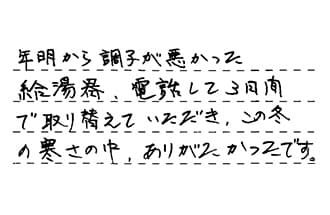 年明から調子が悪かった
給湯器、電話して3日間
で取り替えていただき、この冬
の寒さの中、ありがたかったです。